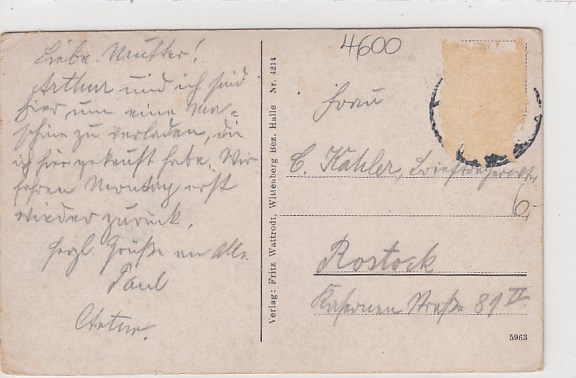 Liebe Mutter!
Arthur und ich sind
hier um eine Ma-
schine zu verladen, die
ich hier gekauft habe. Wir
fahren Montag erst
wieder zurück.
Herzl. Grüße an Alle
Paul
Artur.
Verlag: Fritz Wattrodt, Wittenberg Bez. Halle Nr. 4214
4600
Frau
C. Kahler, Briefträgerwtw.
6,-
Rostock
Kasernen Straße 81 II
5963